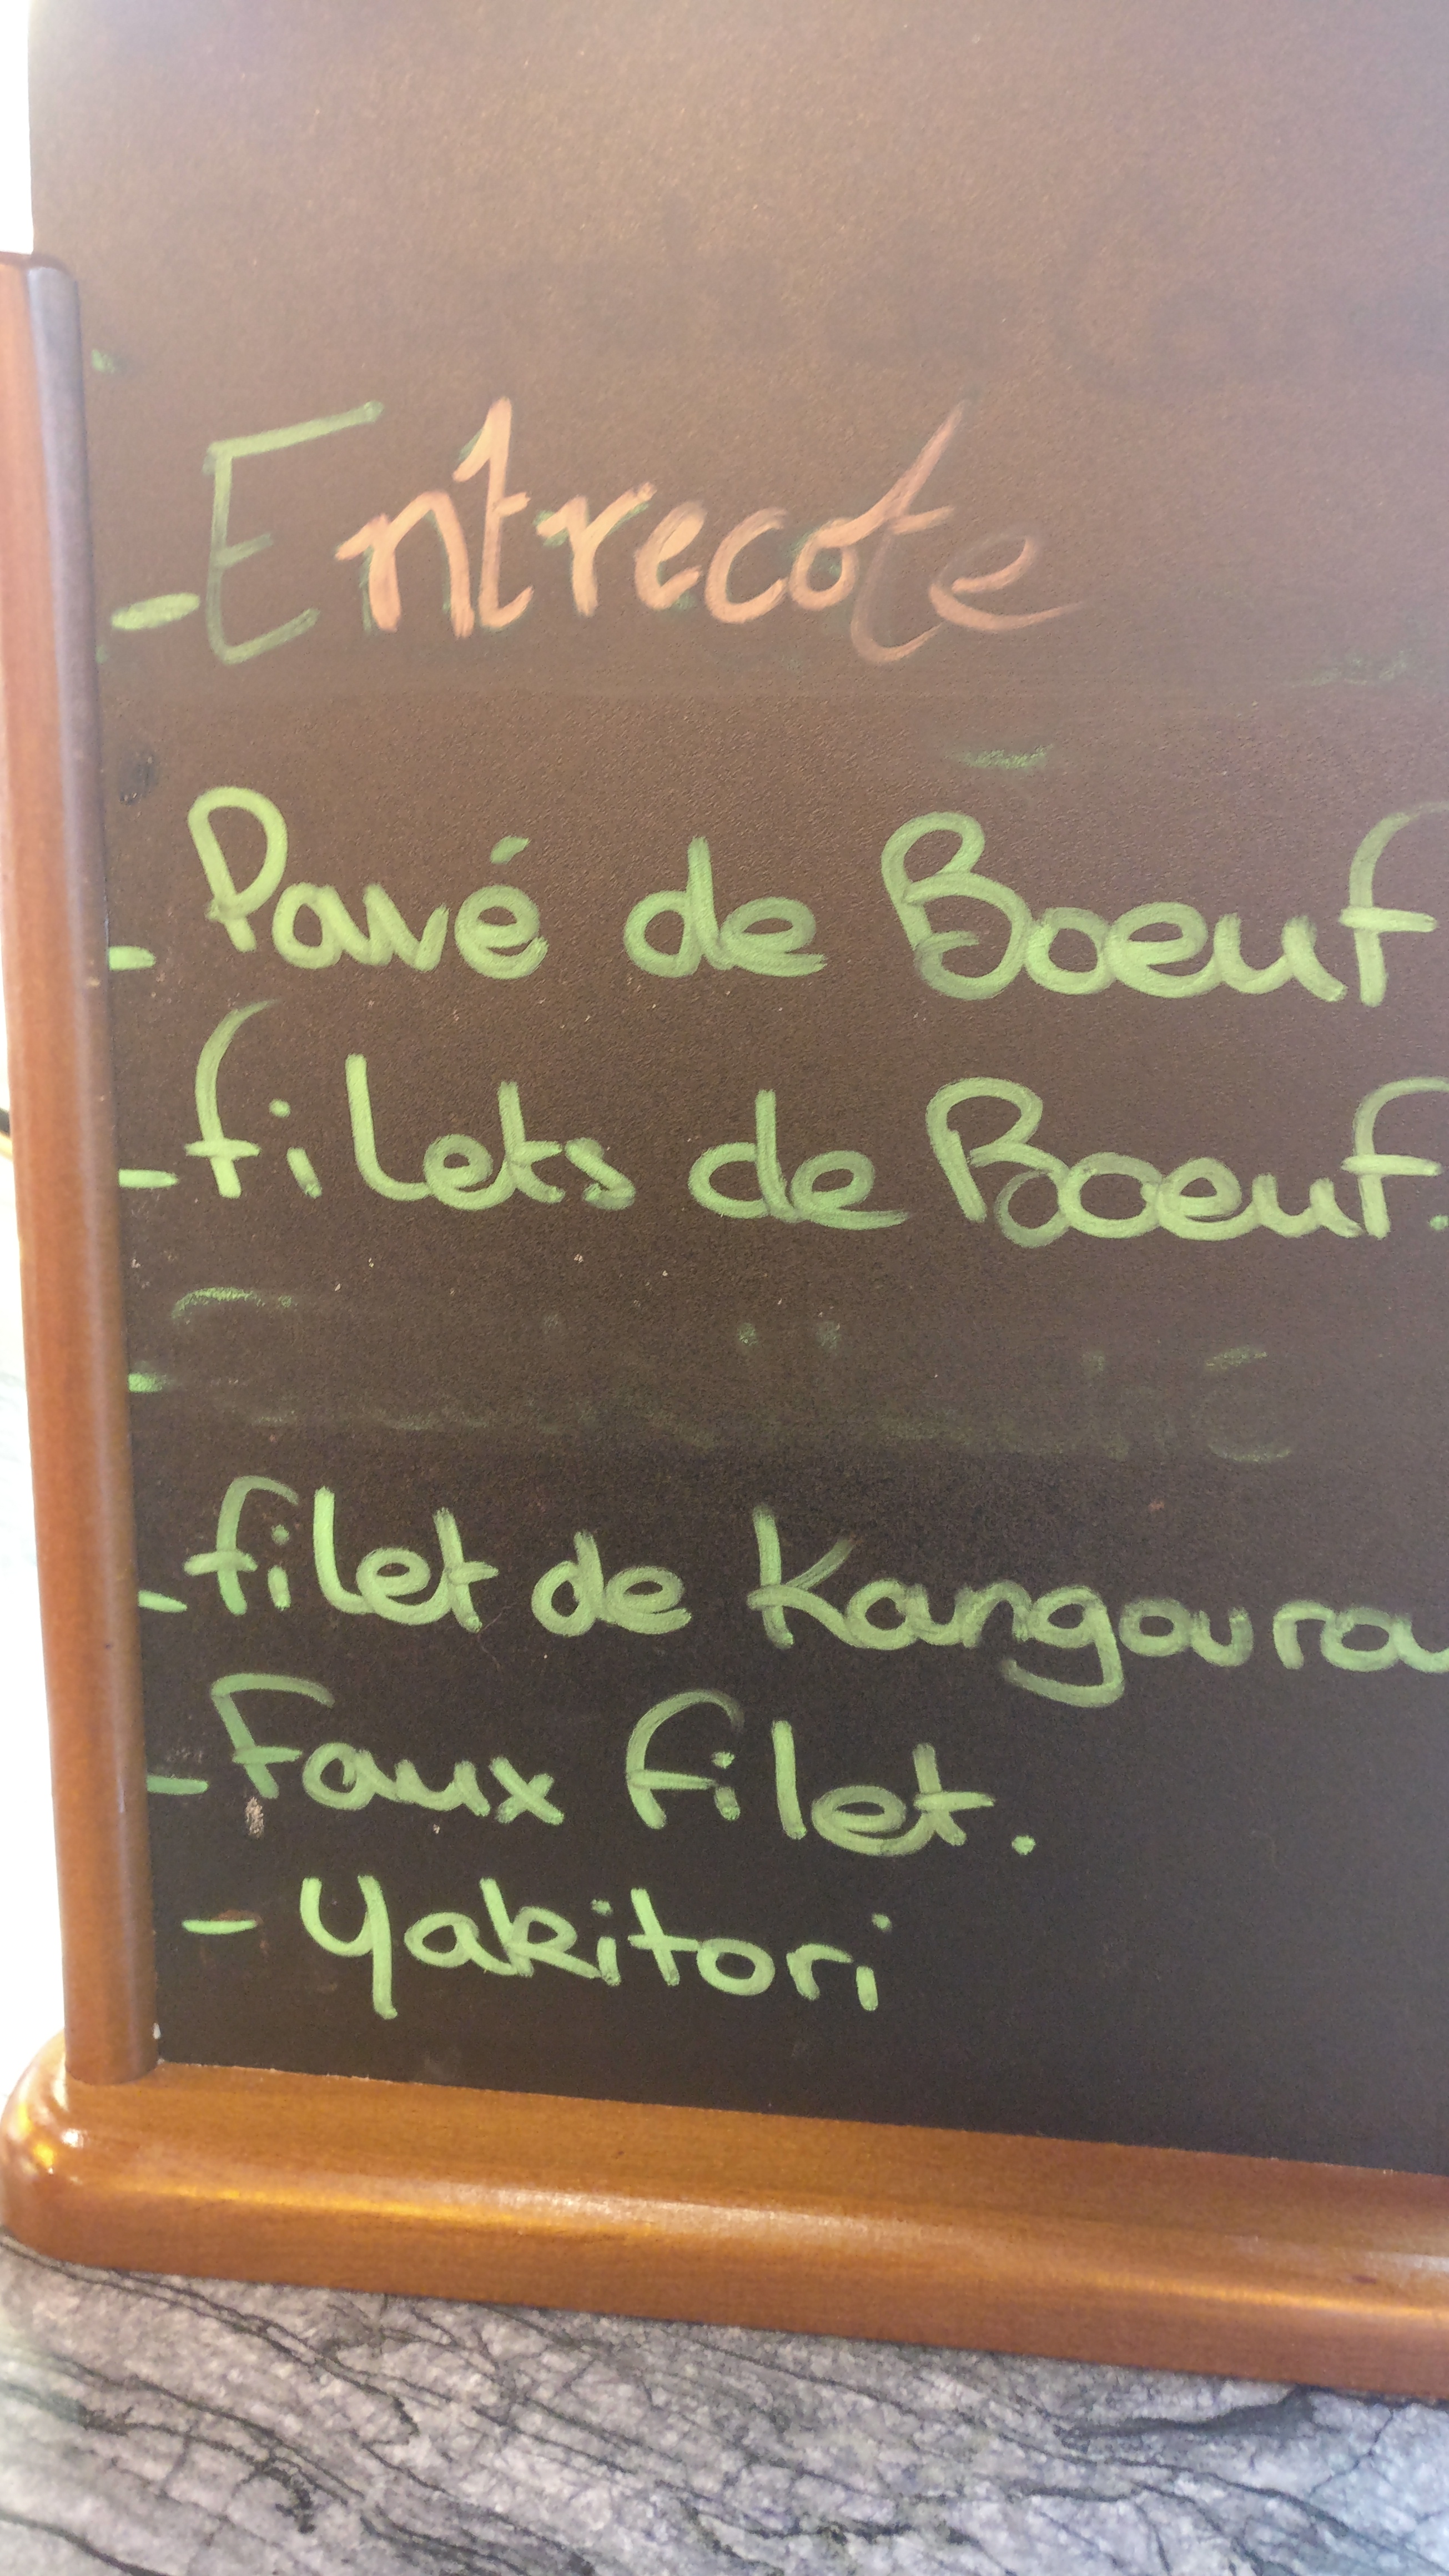 - Entrecote
- Pavé de Boeuf
- filets de Boeuf.
- filet de Kangourou
- Faux filet.
- Yakitori